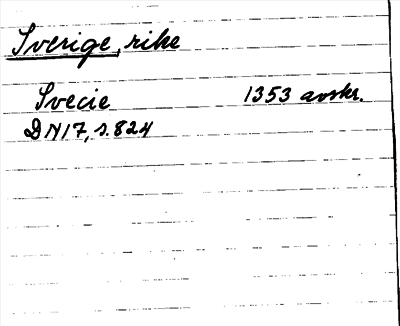 Sverige, rike
Svecie 1353 avskr.
DN17, s. 824